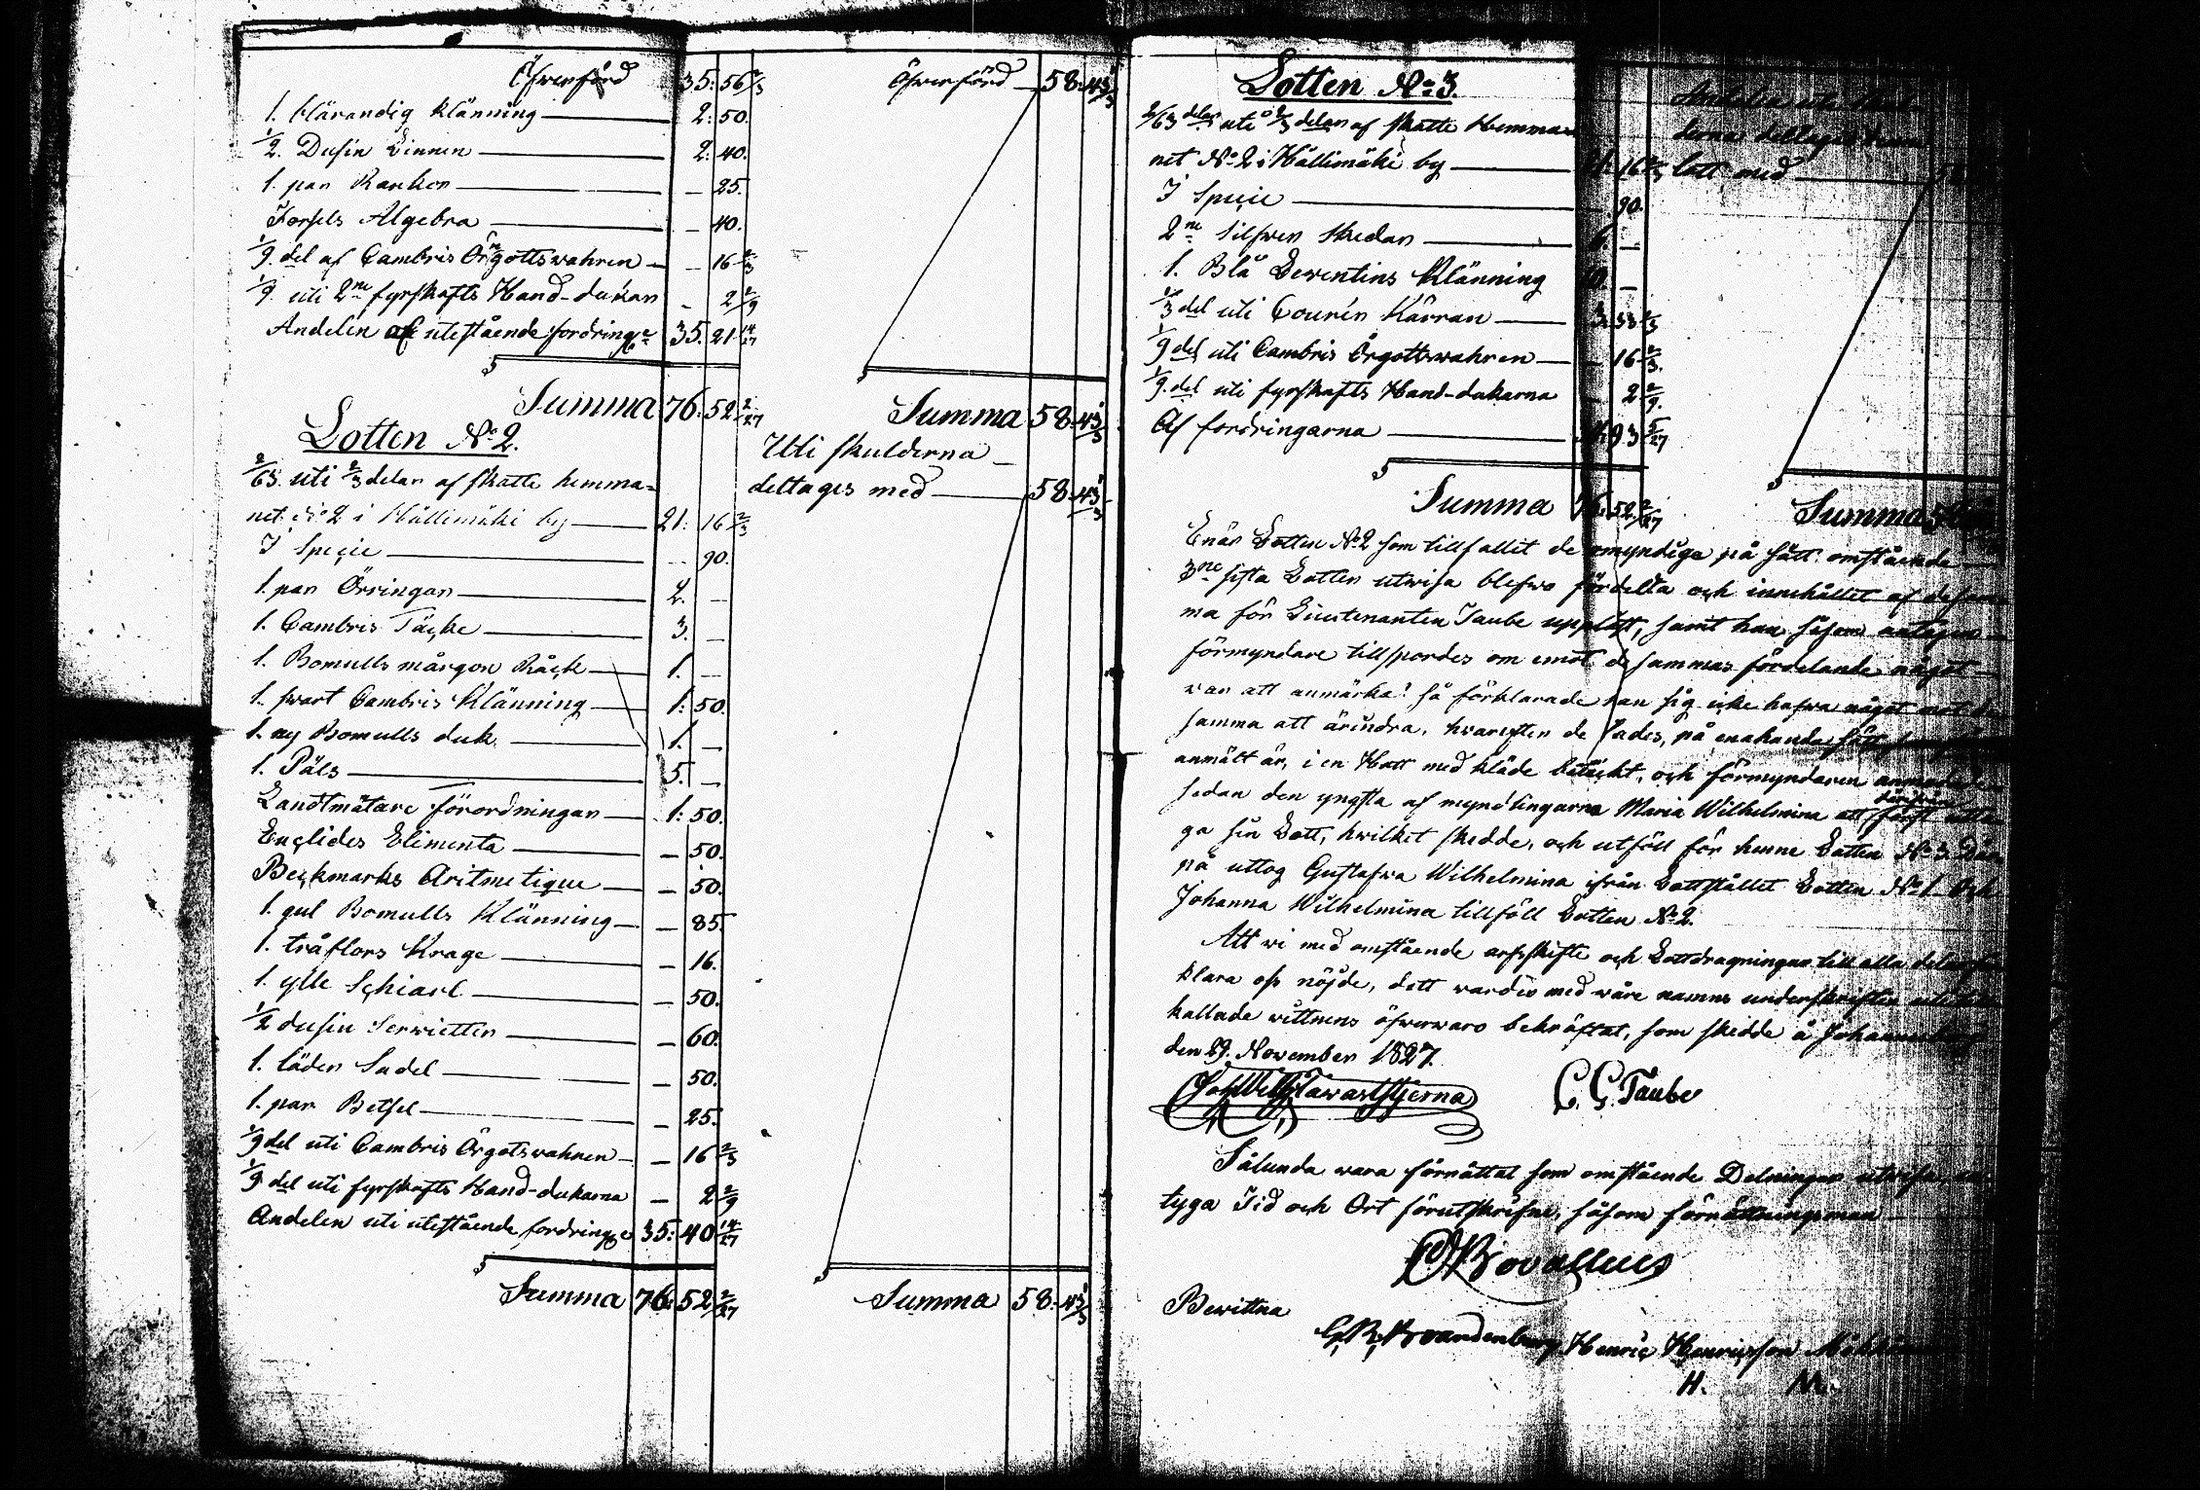 Öfwerförd 35: 56 2/3
1. blårandig klänning 2: 50.
1/2 Dusin Linnen 2: 40.
1. par Kankor — 25.
Forsels Algebra — 40.
1/9 del af Cambris Örgottswahren — 16 2/3
1/9 uti 2ne fyrskafts Hand-dukar — 2 2/9
Andelen af utestående fordringar 35. 21 14/27
Summa 76: 52 2/27
Lotten No 2.
2/63 uti 2/3 delar af skatte hemma-
net No 2 i Hällimäki by 21: 16 2/3
I Speçie — 90.
1. par Örringar 2. —
1. Cambris Täçke 3. —
1. Bomulls mårgon Råçk 1. —
1. swart Cambris Klänning 1: 50.
1. ny Bomulls duk 1. —
1. Päls 5. —
Landtmätare förordningar 1: 50.
Euçlides Elimenta — 50.
Beçkmarks Aritmetique — 50.
1. gul Bomulls Klänning — 85.
1. tråflors Krage — 16.
1. ylle Sçhiarl — 50.
1/2 dusin Serwietter — 60.
1. läder Sadel — 50.
1. par Betsel — 25.
1/9 del uti Cambris Örgotswahren — 16 2/3
1/9 del uti fyrskafts Hand-dukarna — 2 2/9
Andelen uti utestående fordringar 35: 40 14/27
Summa 76: 52 2/27
Öfwerförd 58: 43 1/3
Summa 58: 43 1/3
Uti skulderna
deltages med 58: 43 1/3
Summa 58: 43 1/3
Lotten No 3.
2/63 delar uti 2/3 delar af skatte Hemma
net No 2 i Hällimäki by 16 2/3
I Speçie 90.
2ne silfwer skedar 6. —
1. Blå Lewentins Klänning —
1/3 del uti Courin Kärran 3. 33 1/3
1/9 del uti Cambris Örgottswahren — 16 2/3
1/9 del uti fyrskafts Hand-dukarna — 2 2/9
Af fordringarna 93 5/27
Summa 76: 52 2/27
lott med
Summa
Enär Lotten No 2 som tillfallit de omyndige på sätt omstående
3ne sista Lotter utwisa blefwo fördelta och innehållet af
ma för Lieutenanten Taube uppläst, samt han såsom
förmyndare tillspordes om emot desammas fördelande något
war att anmärka? så förklarade han sig içke hafwa något mot de
samma att ärindra, hwarefter de lades, på enahanda sätt
anmält är, i en Hatt med kläde betäçkt, och förmyndaren
sedan den yngsta af myndlingarne Maria Wilhelmina att först
ga sin Lott, hwilket skedde, och utföll för henne Lotten No 3.
på uttog Gustafwa Wilhelmina ifrån Lottstället Lotten No 1. Och
Johanna Wilhelmina tillföll Lotten No 2.
Att wi med omstående arfsskifte och Lottdragningar till alla delar
klara oss nöjde, dett warder med wåre namns underskrifter
kallade wittnens öfwerwaro bekräftat, som skedde å
den 29. November 1827.
Joh Wilh Tawaststjerna C. G. Taube
Sålunda wara förrättat som omstående Delningar utwisa,
tyga Tid och Ort förutskrifne, såsom förrättningsman
Bovallius
Bewittna
G. R. Brandenburg. Henriç Henriçsson
H. M.